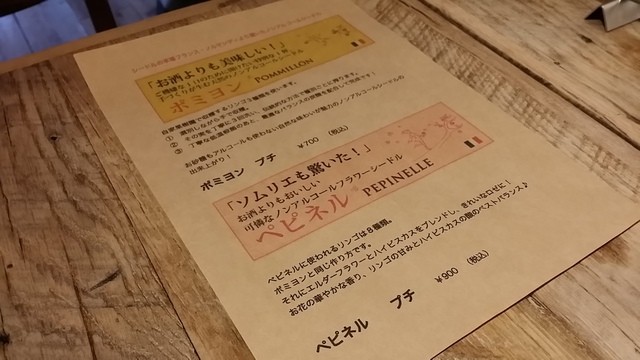 「お酒よりも美味しい！」
ポミヨン POMMILLON
自家果樹園で収穫するリンゴ３種類を使います。
お砂糖もアルコールも使わない自然な味わいが魅力のノンアルコールシードルの
出来上がり！
ポミヨン プチ ￥700 （税込）
「ソムリエも驚いた！」
お酒よりもおいしい
可憐なノンアルコールフラワーシードル
ペピネル PEPINELLE
ペピネルに使われるリンゴは８種類。
ポミヨンと同じ作り方です。
それにエルダーフラワーとハイビスカスをブレンドし、きれいなロゼに！
お花の華やかな香り、リンゴの甘みとハイビスカスの酸のベストバランス♪
ペピネル プチ ￥900 （税込）